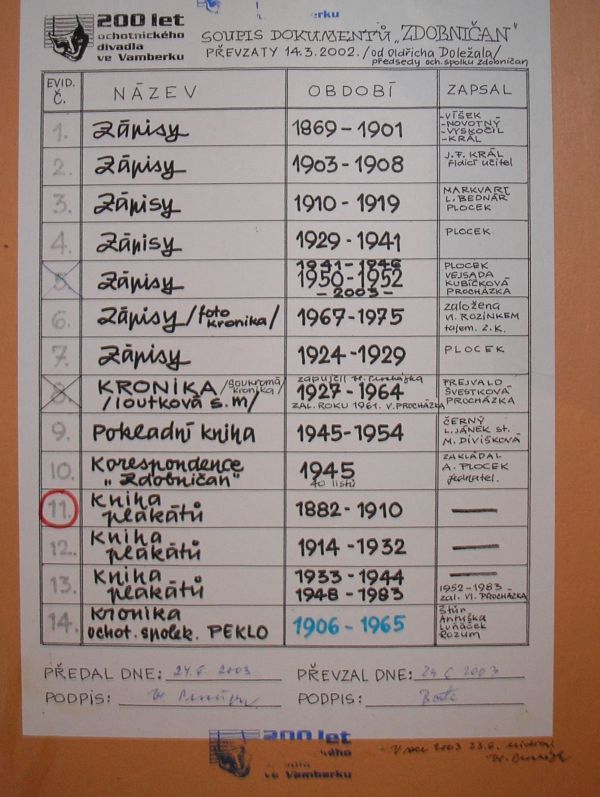 200 let
ochotnického
divadla
ve Vamberku
SOUPIS DOKUMENTŮ „ZDOBNIČAN"
PŘEVZATY 14.3.2002. /od Oldřicha Doležala/
předsedy och. spolku Zdobničan
EVID. Č. NÁZEV OBDOBÍ ZAPSAL
1. Zápisy 1869-1901 -VÍŠEK
-NOVOTNÝ
-VYSKOČIL
-KRÁL
2. Zápisy 1903-1908 J.F. KRÁL
řídící učitel
3. Zápisy 1910-1919 MARKVART
L. BEDNÁŘ
PLOCEK
4. Zápisy 1929-1941 PLOCEK
5. Zápisy 1941-1946
1950-1952
-2003-
PLOCEK
VEJSADA
KUBÍČKOVÁ
PROCHÁZKA
6. Zápisy /foto kronika/ 1967-1975 založena
Vl. ROZÍNKEM
tajem. Z.K.
7. Zápisy 1924-1929 PLOCEK
8. KRONIKA /soukromá kronika/
/loutková s.m/
zapůjčil
1927-1964
ZAL. ROKU 1961. V. PROCHÁZKA
PREJVALD
ŠVESTKOVÁ
PROCHÁZKA
9. Pokladní kniha 1945-1954 ČERNÝ
L. JÁNEK st.
M. DIVIŠKOVÁ
10. Korespondence
„Zdobničan"
1945
40 listů
ZAKLÁDAL
A. PLOCEK
jednatel.
11. Kniha
plakátů
1882-1910 —
12. Kniha
plakátů
1914-1932 —
13. Kniha
plakátů
1933-1944
1948-1983
—
1952-1983-
zal. Vl. PROCHÁZKA
14. Kronika
ochot. spolek. PEKLO
1906-1965
Štůr
Antuška
Luňáček
Rozum
PŘEDAL DNE: 24.6. 2003 PŘEVZAL DNE: 24.6 2003
PODPIS: PODPIS:
200 let
ochotnického
divadla
ve Vamberku